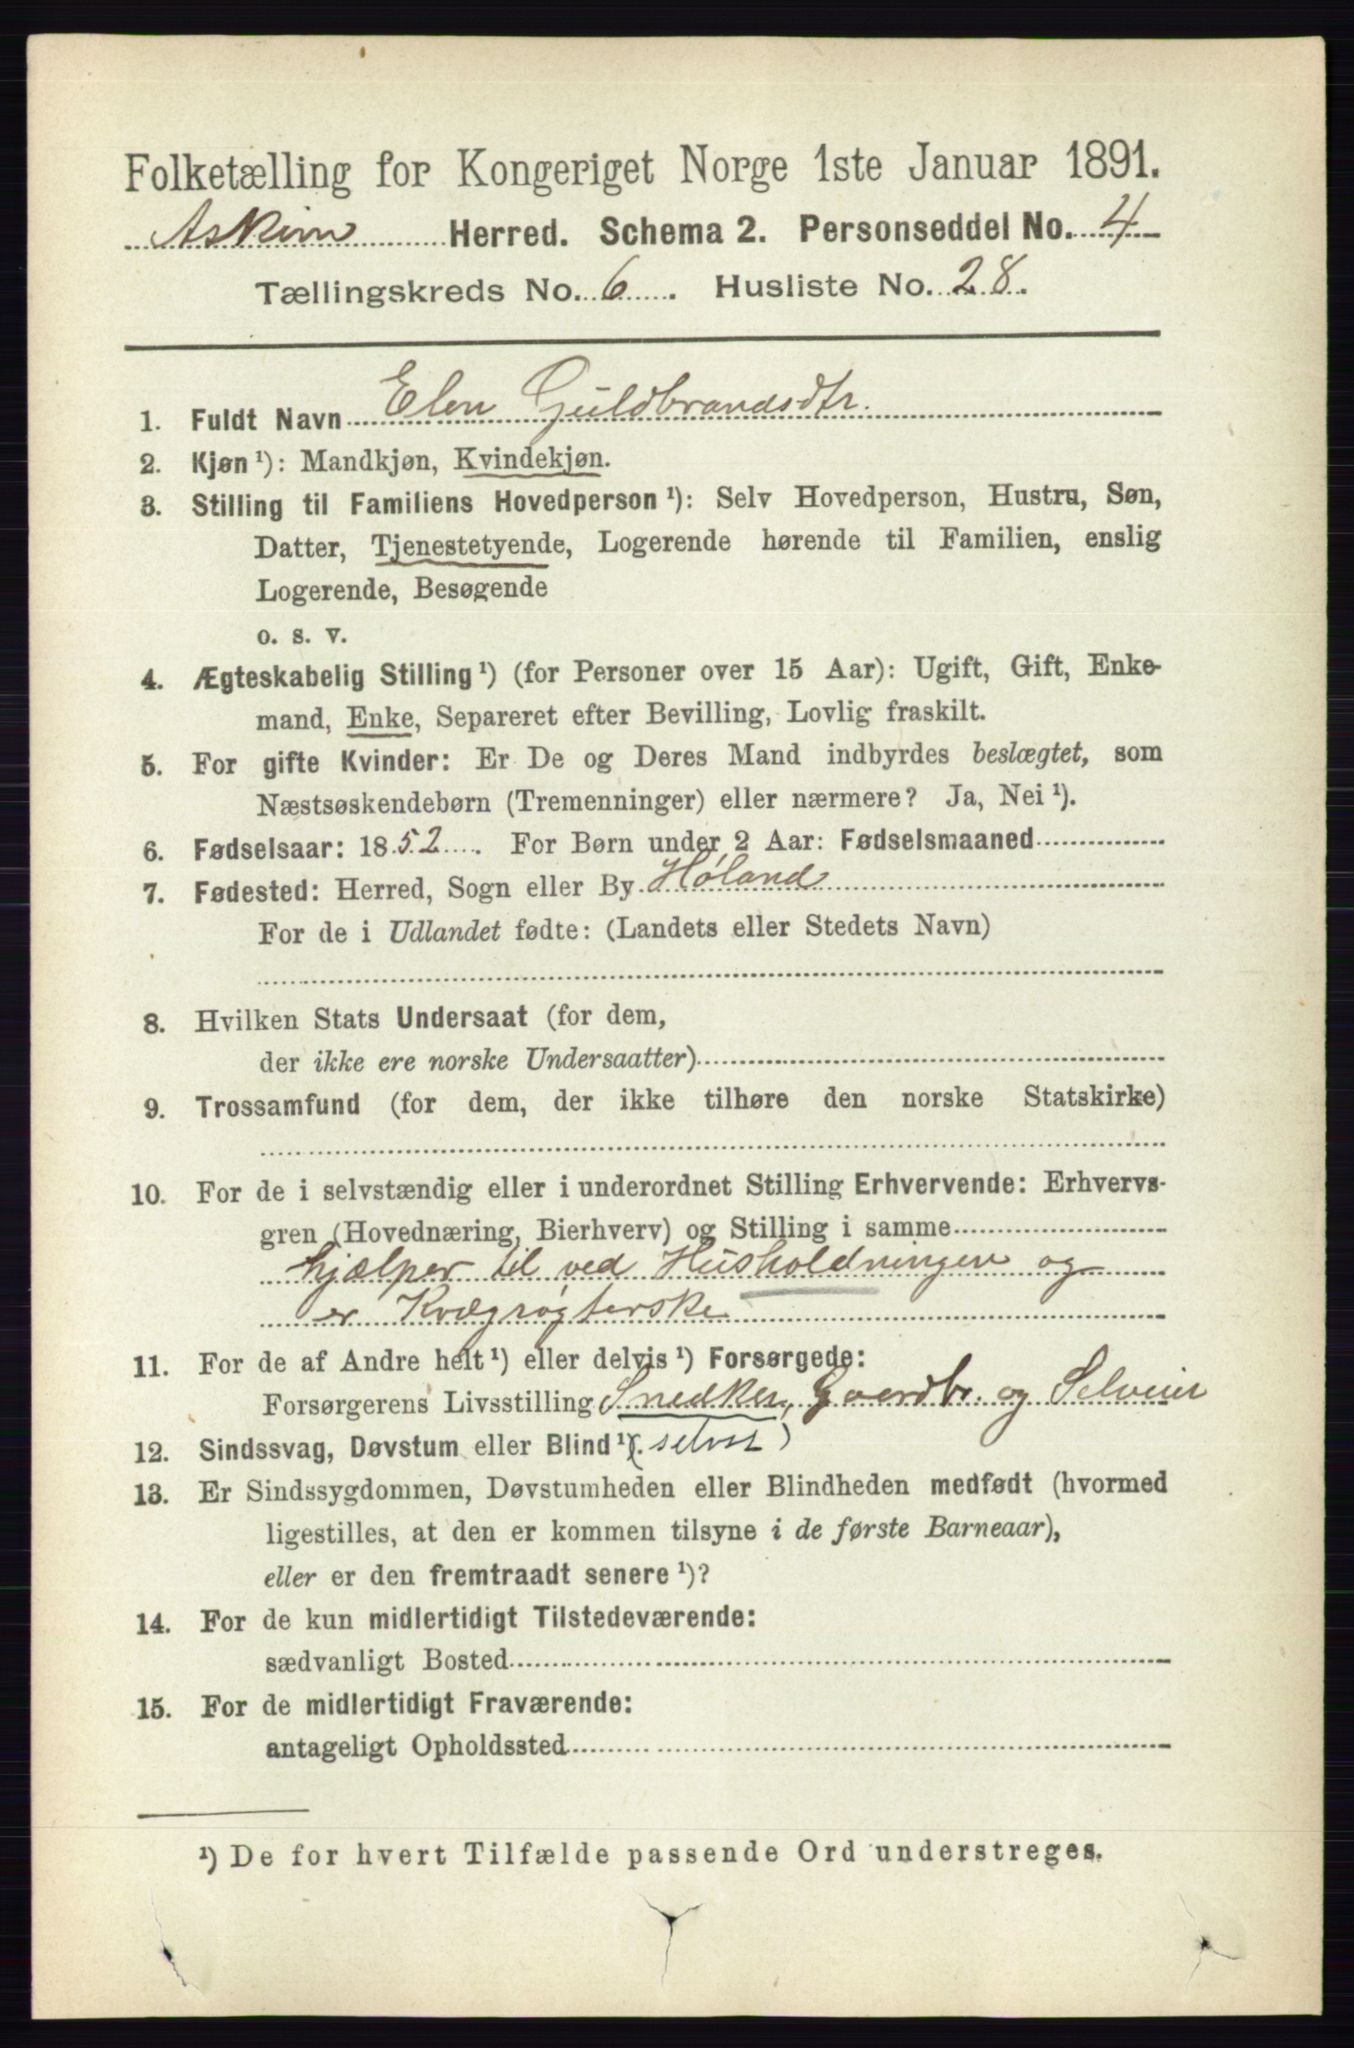 Folketælling for Kongeriget Norge 1ste Januar 1891.
Askim Herred. Schema 2. Personseddel No. 4
Tællingskreds No. 6. Husliste No. 28.
1. Fuldt Navn Elen Guldbrandsdtr.
2. Kjøn¹): Mandkjøn, Kvindekjøn.
3. Stilling til Familiens Hovedperson¹): Selv Hovedperson, Hustru, Søn,
Datter, Tjenestetyende, Logerende hørende til Familien, enslig
Logerende, Besøgende
o. s. v.
4. Ægteskabelig Stilling¹) (for Personer over 15 Aar): Ugift, Gift, Enke-
mand, Enke, Separeret efter Bevilling, Lovlig fraskilt.
5. For gifte Kvinder: Er De og Deres Mand indbyrdes beslægtet, som
Næstsøskendebørn (Tremenninger) eller nærmere? Ja, Nei¹).
6. Fødselsaar: 1852. For Børn under 2 Aar: Fødselsmaaned
7. Fødested: Herred, Sogn eller By Høland
For de i Udlandet fødte: (Landets eller Stedets Navn)
8. Hvilken Stats Undersaat (for dem,
der ikke ere norske Undersaatter)
9. Trossamfund (for dem, der ikke tilhøre den norske Statskirke)
10. For de i selvstændig eller i underordnet Stilling Erhvervende: Erhvervs-
gren (Hovednæring, Bierhverv) og Stilling i samme
hjælper til ved Husholdningen og
er Kvægrøgterske
11. For de af Andre helt¹) eller delvis¹) Forsørgede:
Forsørgerens Livsstilling Snedker, Gaardbr. og Selveier
12. Sindssvag, Døvstum eller Blind¹). (selvst)
13. Er Sindssygdommen, Døvstumheden eller Blindheden medfødt (hvormed
ligestilles, at den er kommen tilsyne i de første Barneaar),
eller er den fremtraadt senere¹)?
14. For de kun midlertidigt Tilstedeværende:
sædvanligt Bosted
15. For de midlertidigt Fraværende:
antageligt Opholdssted
¹) De for hvert Tilfælde passende Ord understreges.